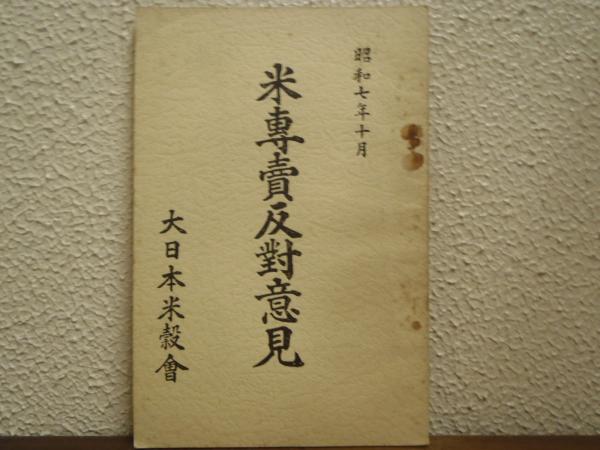 昭和七年十月
米專賣反對意見
大日本米穀會